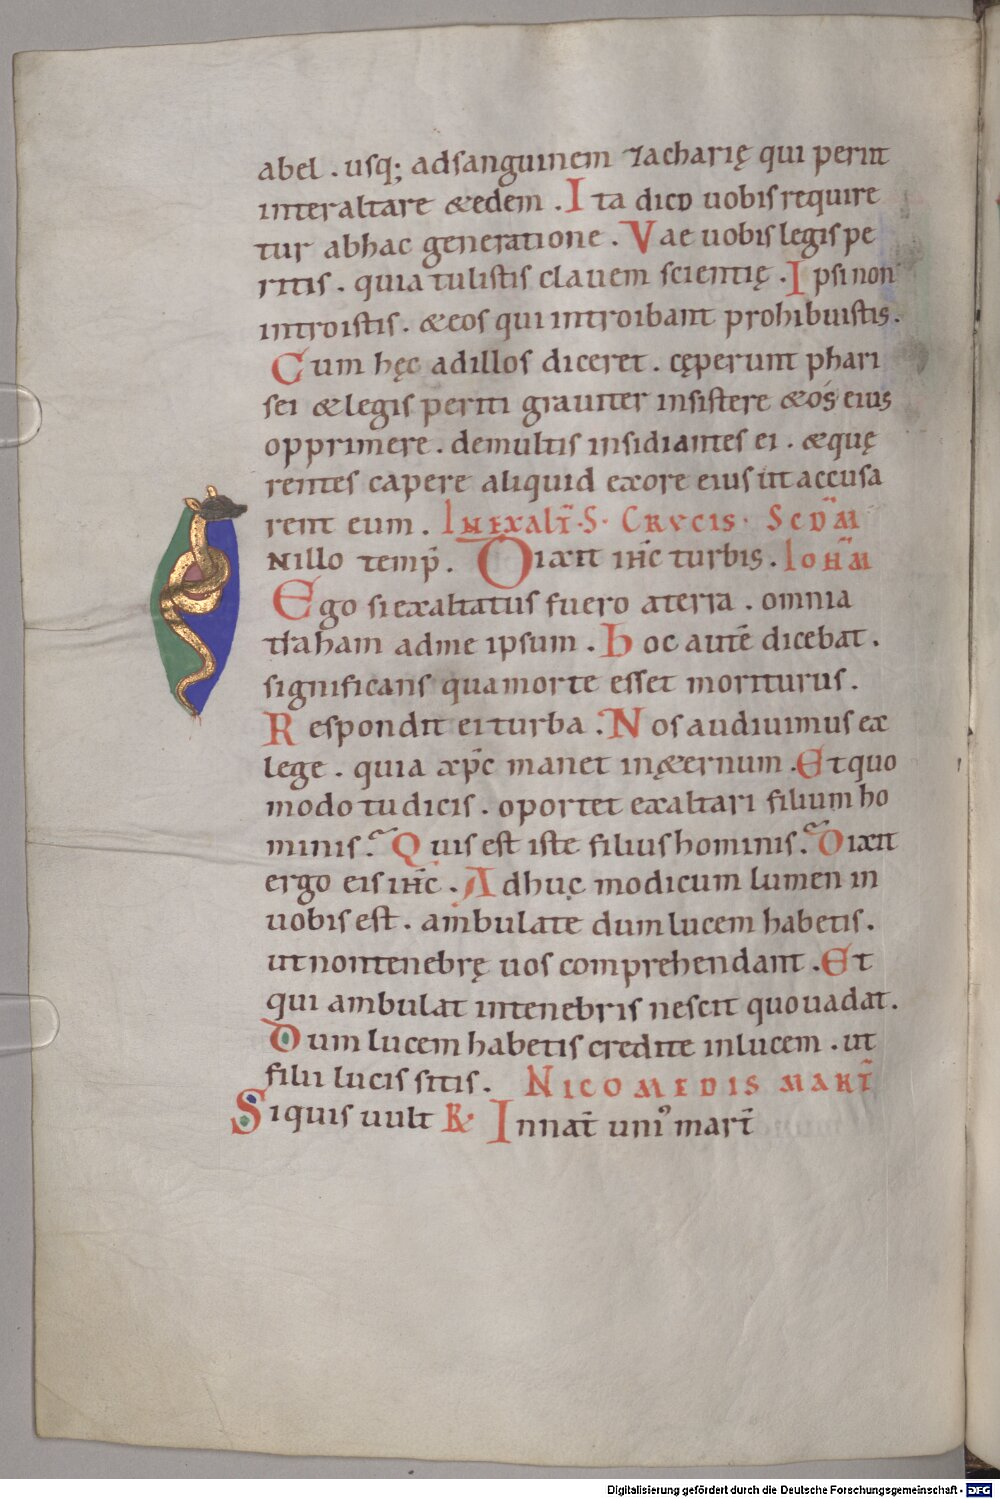 abel . usq; adsanguinem zacharię qui periit
interaltare & edem . Ita dico uobis require
tur abhac generatione . Vae uobis legis pe
ritis . quia tulistis clauem scientię . Ipsi non
introistis . & eos qui introibant prohibuistis .
Cum hęc adillos diceret . cęperunt phari
sei & legis periti grauiter insistere & ós eius
opprimere . demultis insidiantes ei . & quę
rentes capere aliquid exore eius ut accusa
rent eum . IN EXALT̄ · S · CRVCIS · SCD̄M
NIllo temp̄ . Dixit ih̄c turbis . IOHM̄
Ego si exaltatus fuero aterra . omnia
traham adme ipsum . hoc autē dicebat .
significans qua morte esset moriturus .
Respondit ei turba . Nos audiuimus ex
lege . quia xp̄c manet inęternum . Et quo
modo tu dicis . oportet exaltari filium ho
minis . Quis est iste filius hominis . Dixit
ergo eis ih̄c . Adhuc modicum lumen in
uobis est . ambulate dum lucem habetis .
ut non tenebrę uos comprehendant . Et
qui ambulat intenebris nescit quo uadat .
Dum lucem habetis credite inlucem . ut
filii lucis sitis . NICOMEDIS MART̄
Siquis uult R · In nat̄ uniꝰ mart̄
Digitalisierung gefördert durch die Deutsche Forschungsgemeinschaft - DFG